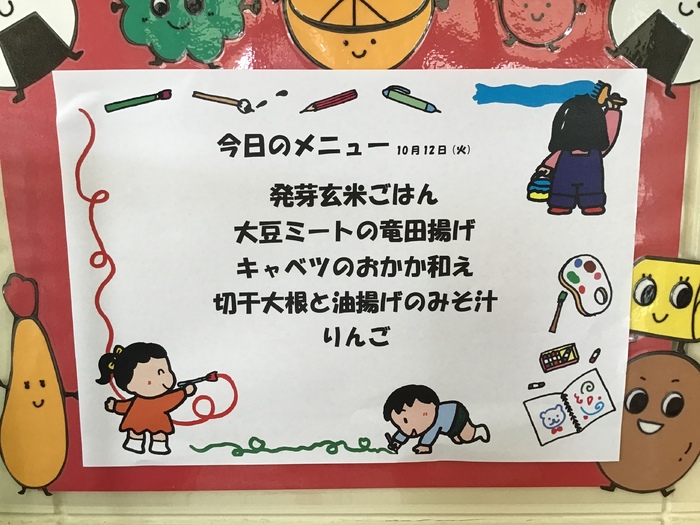 今日のメニュー 10月12日(火)
発芽玄米ごはん
大豆ミートの竜田揚げ
キャベツのおかか和え
切干大根と油揚げのみそ汁
りんご